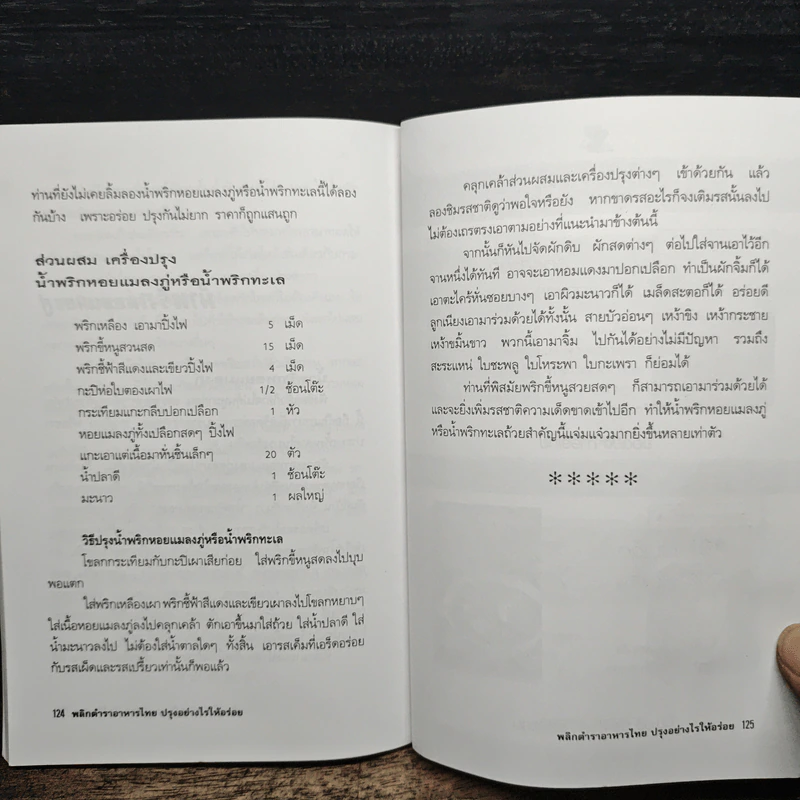 ท่านที่ยังไม่เคยลิ้มลองน้ำพริกหอยแมลงภู่หรือน้ำพริกทะเลนี้ได้ลอง
กันบ้าง เพราะอร่อย ปรุงกันไม่ยาก ราคาก็ถูกแสนถูก
ส่วนผสม เครื่องปรุง
น้ำพริกหอยแมลงภู่หรือน้ำพริกทะเล
พริกเหลือง เอามาปิ้งไฟ 5 เม็ด
พริกขี้หนูสวนสด 15 เม็ด
พริกชี้ฟ้าสีแดงและเขียวปิ้งไฟ 4 เม็ด
กะปิห่อใบตองเผาไฟ 1/2 ช้อนโต๊ะ
กระเทียมแกะกลีบปอกเปลือก 1 หัว
หอยแมลงภู่ทั้งเปลือกสดๆ ปิ้งไฟ
แกะเอาแต่เนื้อมาหั่นชิ้นเล็กๆ 20 ตัว
น้ำปลาดี 1 ช้อนโต๊ะ
มะนาว 1 ผลใหญ่
วิธีปรุงน้ำพริกหอยแมลงภู่หรือน้ำพริกทะเล
โขลกกระเทียมกับกะปิเผาเสียก่อน ใส่พริกขี้หนูสดลงไปบุบ
พอแตก
ใส่พริกเหลืองเผา พริกชี้ฟ้าสีแดงและเขียวเผาลงไปโขลกหยาบๆ
ใส่เนื้อหอยแมลงภู่ลงไปคลุกเคล้า ตักเอาขึ้นมาใส่ถ้วย ใส่น้ำปลาดี ใส่
น้ำมะนาวลงไป ไม่ต้องใส่น้ำตาลใดๆ ทั้งสิ้น เอารสเค็มที่เอร็ดอร่อย
กับรสเผ็ดและรสเปรี้ยวเท่านั้นก็พอแล้ว
124 พลิกตำราอาหารไทย ปรุงอย่างไรให้อร่อย
คลุกเคล้าส่วนผสมและเครื่องปรุงต่างๆ เข้าด้วยกัน แล้ว
ลองชิมรสชาติดูว่าพอใจหรือยัง หากขาดรสอะไรก็จงเติมรสนั้นลงไป
ไม่ต้องเถรตรงเอาตามอย่างที่แนะนำมาข้างต้นนี้
จากนั้นก็หันไปจัดผักดิบ ผักสดต่างๆ ต่อไปใส่จานเอาไว้อีก
จานหนึ่งได้ทันที อาจจะเอาหอมแดงมาปอกเปลือก ทำเป็นผักจิ้มก็ได้
เอาตะไคร้หั่นซอยบางๆ เอาผิวมะนาวก็ได้ เมล็ดสะตอก็ได้ อร่อยดี
ลูกเนียงเอามาร่วมด้วยได้ทั้งนั้น สายบัวอ่อนๆ เหง้าขิง เหง้ากระชาย
เหง้าขมิ้นขาว พวกนี้เอามาจิ้ม ไปกันได้อย่างไม่มีปัญหา รวมถึง
สะระแหน่ ใบชะพลู ใบโหระพา ใบกะเพรา ก็ย่อมได้
ท่านที่พิสมัยพริกขี้หนูสวยสดๆ ก็สามารถเอามาร่วมด้วยได้
และจะยิ่งเพิ่มรสชาติความเด็ดขาดเข้าไปอีก ทำให้น้ำพริกหอยแมลงภู่
หรือน้ำพริกทะเลถ้วยสำคัญนี้แจ่มแจ๋วมากยิ่งขึ้นหลายเท่าตัว
*****
พลิกตำราอาหารไทย ปรุงอย่างไรให้อร่อย 125